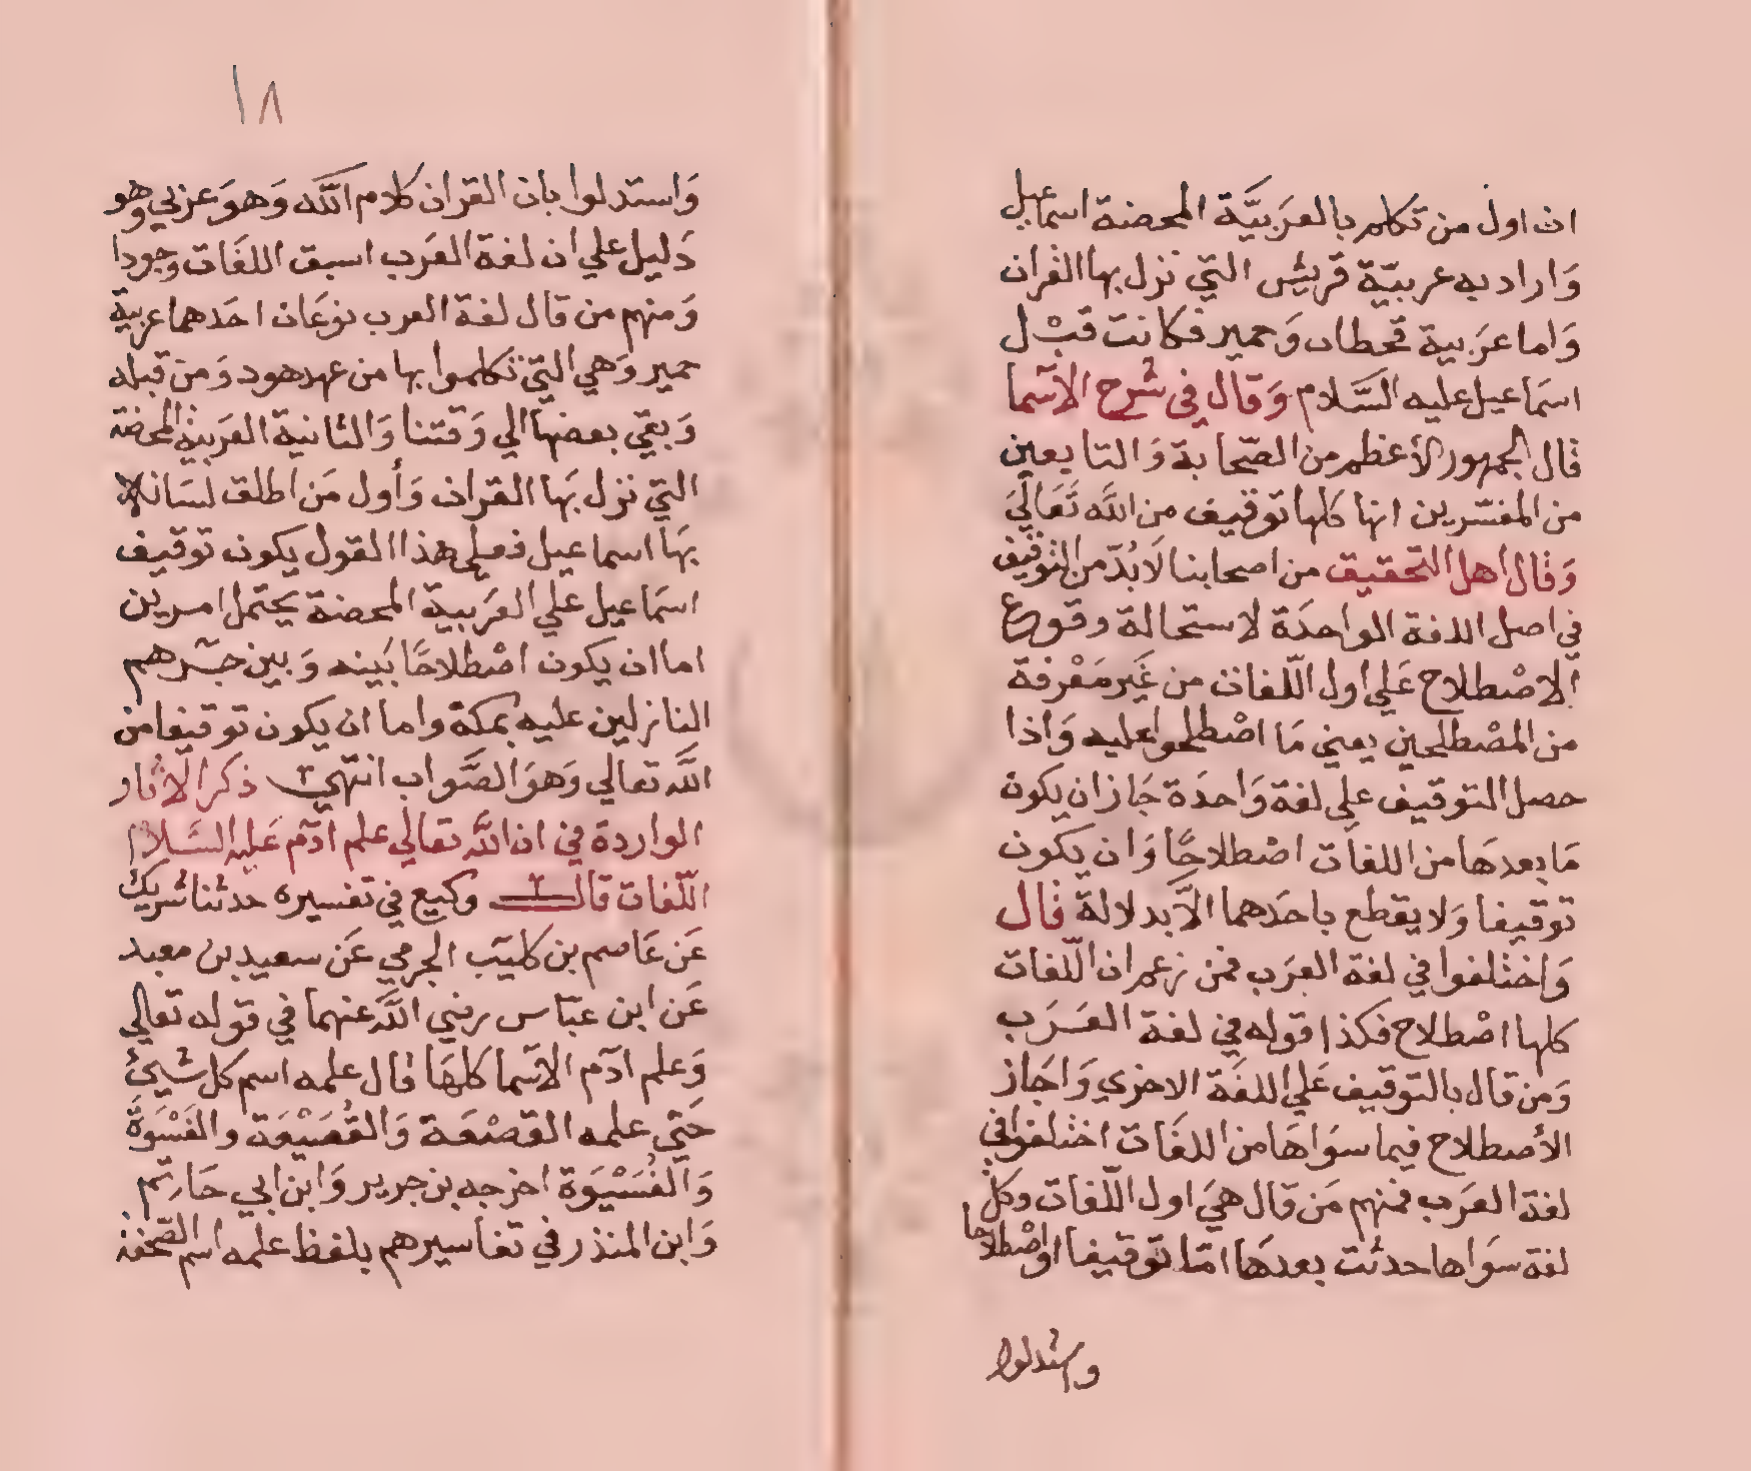 ان اول من تكلم بالعَرَبيَّة المحضة اسماعيل
وَاراد به عربيّة قريش التي نزل بها القران
وَاما عرَبية قحطان وَحمير فكانت قبْل
اسمَاعيل عليه السَّلام وَقال في شرح الاسما
قال الجمهور الأعظم من الصّحابة وَالتابعين
من المفسّرين انها كلها توقيف من اللَّه تَعَالَي
وَقال اهل التحقيق من اصحابنا لَابُدّ من التوقيف
في اصل اللغة الواحدَة لاستحالة وقوع
الاصْطلاح عَلي اول اللّغات من غَير مَعْرفة
من المصْطلحين بعيني مَا اصْطلحوا عليه وَاذا
حصل التوقيف علي لغة وَاحدَة جَاز ان يكون
مَا بعدهَا من اللغات اصْطلاحًا وَان يكون
توقيفا وَلا يقطع باحَدهما الَّا بدلالة قال
وَاختلفوا في لغة العرَب فمن زعم ان اللّغات
كلها اصْطلاح فكذا قوله في لغة العَرَب
وَمن قال بالتوقيف عَلي اللغَة الاخري وَاجَاز
الأصطلاح فيما سوَاهَا من اللغَات اختلفوا في
لغة العرَب فمنهم مَن قال هيَ اول اللّغات وكل
لغة سوَاها حدثت بعدهَا امّا توقيفا او اصْطلاحا
واستدلوا
١٨
وَاستدلوا بان القران كلام اللَّه وَهوَ عربي وهو
دَليل علي ان لغة العَرب اسبق اللغَات وجودا
وَمنهم من قال لغة العرب نوعَان احَدهما عربية
حمير وَهي التي تكلموا بها من عهد هود وَمن قبله
وَبقي بعضهَا الي وَقتنا وَالثانية العَربية المحضة
التي نزل بهَا القران وَأول مَن اطلق لسَانه
بهَا اسماعيل فعلي هذا القول يكون توقيف
اسمَاعيل علي العَربية المحضة يحتمل امرين
اما ان يكون اصْطلاحًا بَينه وَبين جرهم
النازلين عليه بمكة واما ان يكون توقيفا من
اللَّه تعالي وَهوَ الصَّواب انتهي ذكر الاثار
الواردة في ان اللَّه تعالي علم ادَم عَليه السَّلام
اللّغات قال وكيع في تفسيره حدثنا شريك
عَن عَاصم بن كليَب الجرمي عَن سعيد بن معبد
عَن ابن عبّاس رضي اللَّه عنهما في قوله تعالي
وَعلم ادَم الاسَما كلهَا قال علمه اسم كل شيئ
حَتي علمه القصْعَة وَالقُصَيْعَة والفَسْوَة
وَالفُسَيْوَة اخرجه بن جرير وَابن ابي حَاتم
وَابن المنذر في تفاسيرهم بلفظ علمه اسم الصّحفة